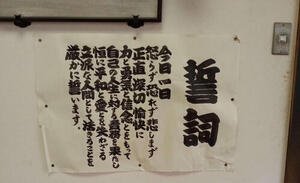 誓詞
今日一日
怒らず恐れず悲しまず
正直深切愉快に
力と勇気と信念とをもって
自己の人生に対する責務を果たし
恒に平和と愛とを失わざる
立派な人間として活きることを
厳かに誓います。